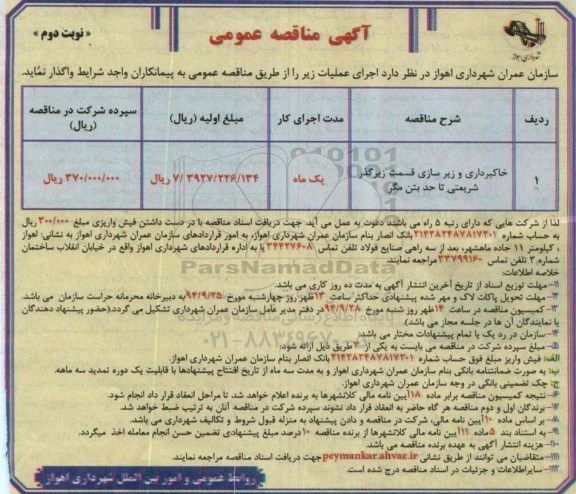 آگهی مناقصه عمومی
« نوبت دوم »
شهرداری اهواز
سازمان عمران شهرداری اهواز در نظر دارد اجرای عملیات زیر را از طریق مناقصه عمومی به پیمانکاران واجد شرایط واگذار نماید.
ردیف شرح مناقصه مدت اجرای کار مبلغ اولیه (ریال) سپرده شرکت در مناقصه (ریال)
۱ خاکبرداری و زیر سازی قسمت زیرگذر شریعتی تا حد بتن مگر یک ماه ۷/۳۹۲۷/۲۲۶/۱۳۴ ریال ۳۷۰/۰۰۰/۰۰۰ ریال
لذا از شرکت هایی که دارای رتبه ۵ راه می باشند دعوت به عمل می آید جهت دریافت اسناد مناقصه با در دست داشتن فیش واریزی مبلغ ۳۰۰/۰۰۰ ریال
به حساب شماره ۳۱۴۳۸۲۴۸۷۸۱۷۲۰۱ بانک انصار بنام سازمان عمران شهرداری اهواز، به امور قراردادهای سازمان عمران شهرداری اهواز به نشانی: اهواز
، کیلومتر ۱۱ جاده ماهشهر، بعد از سه راهی صنایع فولاد تلفن تماس ۳۴۴۳۷۶۰۸ یا به اداره قراردادهای شهرداری اهواز واقع در خیابان انقلاب ساختمان
شماره ۳ تلفن تماس ۳۳۷۹۹۱۶۰ مراجعه نمایند.
خلاصه اطلاعات:
۱- مهلت توزیع اسناد از تاریخ آخرین انتشار آگهی به مدت ده روز کاری می باشد.
۲- مهلت تحویل پاکات لاک و مهر شده پیشنهادی حداکثر ساعت ۱۳ ظهر روز چهارشنبه مورخ ۹۴/۹/۲۵ به دبیرخانه محرمانه حراست سازمان می باشد.
۳- کمیسیون مناقصه در ساعت ۱۴ ظهر روز شنبه مورخ ۹۴/۹/۲۸ در دفتر مدیر عامل سازمان عمران شهرداری تشکیل می گردد.(حضور پیشنهاد دهندگان
یا نمایندگان آن ها در جلسه مجاز می باشد).
۴- سازمان در رد یک یا تمام پیشنهادات مختار می باشد.
۵- مبلغ سپرده شرکت در مناقصه می بایست به یکی از ۳ طریق ذیل ارائه شود:
الف: فیش واریز مبلغ فوق حساب شماره ۳۱۴۳۸۲۴۸۷۸۱۷۲۰۱ بانک انصار بنام سازمان عمران شهرداری اهواز.
ب: به صورت ضمانتنامه بانکی بنام سازمان عمران شهرداری اهواز و به مدت سه ماه از تاریخ افتتاح پیشنهادها با قابلیت یک دوره تمدید سه ماهه.
ج: چک تضمینی بانکی در وجه سازمان عمران شهرداری اهواز.
۶- نتیجه کمیسیون مناقصه برابر ماده ۱۸ آیین نامه مالی کلانشهرها به برنده اعلام خواهد شد تا مراحل انعقاد قرار داد انجام شود.
۷- برندگان اول و دوم مناقصه هر گاه حاضر به انعقاد قرار داد نشوند سپرده شرکت در مناقصه آنان به ترتیب ضبط خواهد شد.
۸- بر اساس ماده ۱۰ آیین نامه مالی، شرکت در مناقصه و دادن پیشنهاد به منزله قبول شروط و تکالیف شهرداری می باشد.
۹- به استناد بند ۵ ماده ۱۱ آیین نامه مالی کلانشهرها از برنده مناقصه ۱۰ درصد مبلغ پیشنهادی تضمین حسن انجام معامله اخذ میگردد.
۱۰- هزینه انتشار آگهی به عهده برنده مناقصه می باشد.
۱۱- متقاضیان می توانند از طریق نشانی peymankar.ahvaz.ir جهت دریافت اسناد مناقصه مراجعه نمایند.
۱۲- سایراطلاعات و جزئیات در اسناد مناقصه درج شده است.
روابط عمومی و امور بین الملل شهرداری اهواز
ParsNamadData
پایگاه اطلاع رسانی مناقصه و مزایده
۰۲۱-۸۸۳۴۹۶۷۰